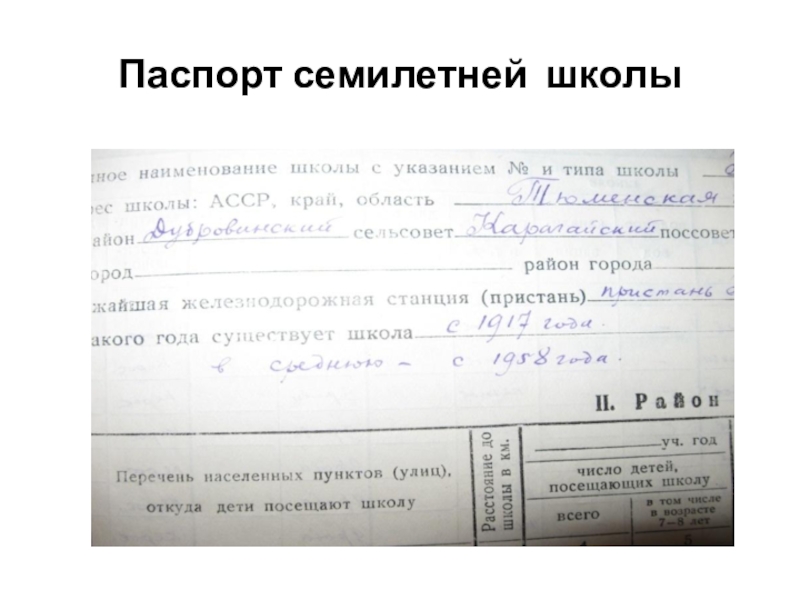 Паспорт семилетней школы
ное наименование школы с указанием № и типа школы
ес школы: АССР, край, область Тюменская
айон Дубровинский сельсовет Карагайский поссовет
ород район города
жайшая железнодорожная станция (пристань) пристань
акого года существует школа с 1917 года.
в среднюю – с 1958 года.
II. Район
Перечень населенных пунктов (улиц),
откуда дети посещают школу
Расстояние до
школы в км.
уч. год
число детей,
посещающих школу
всего
в том числе
в возрасте
7—8 лет
5